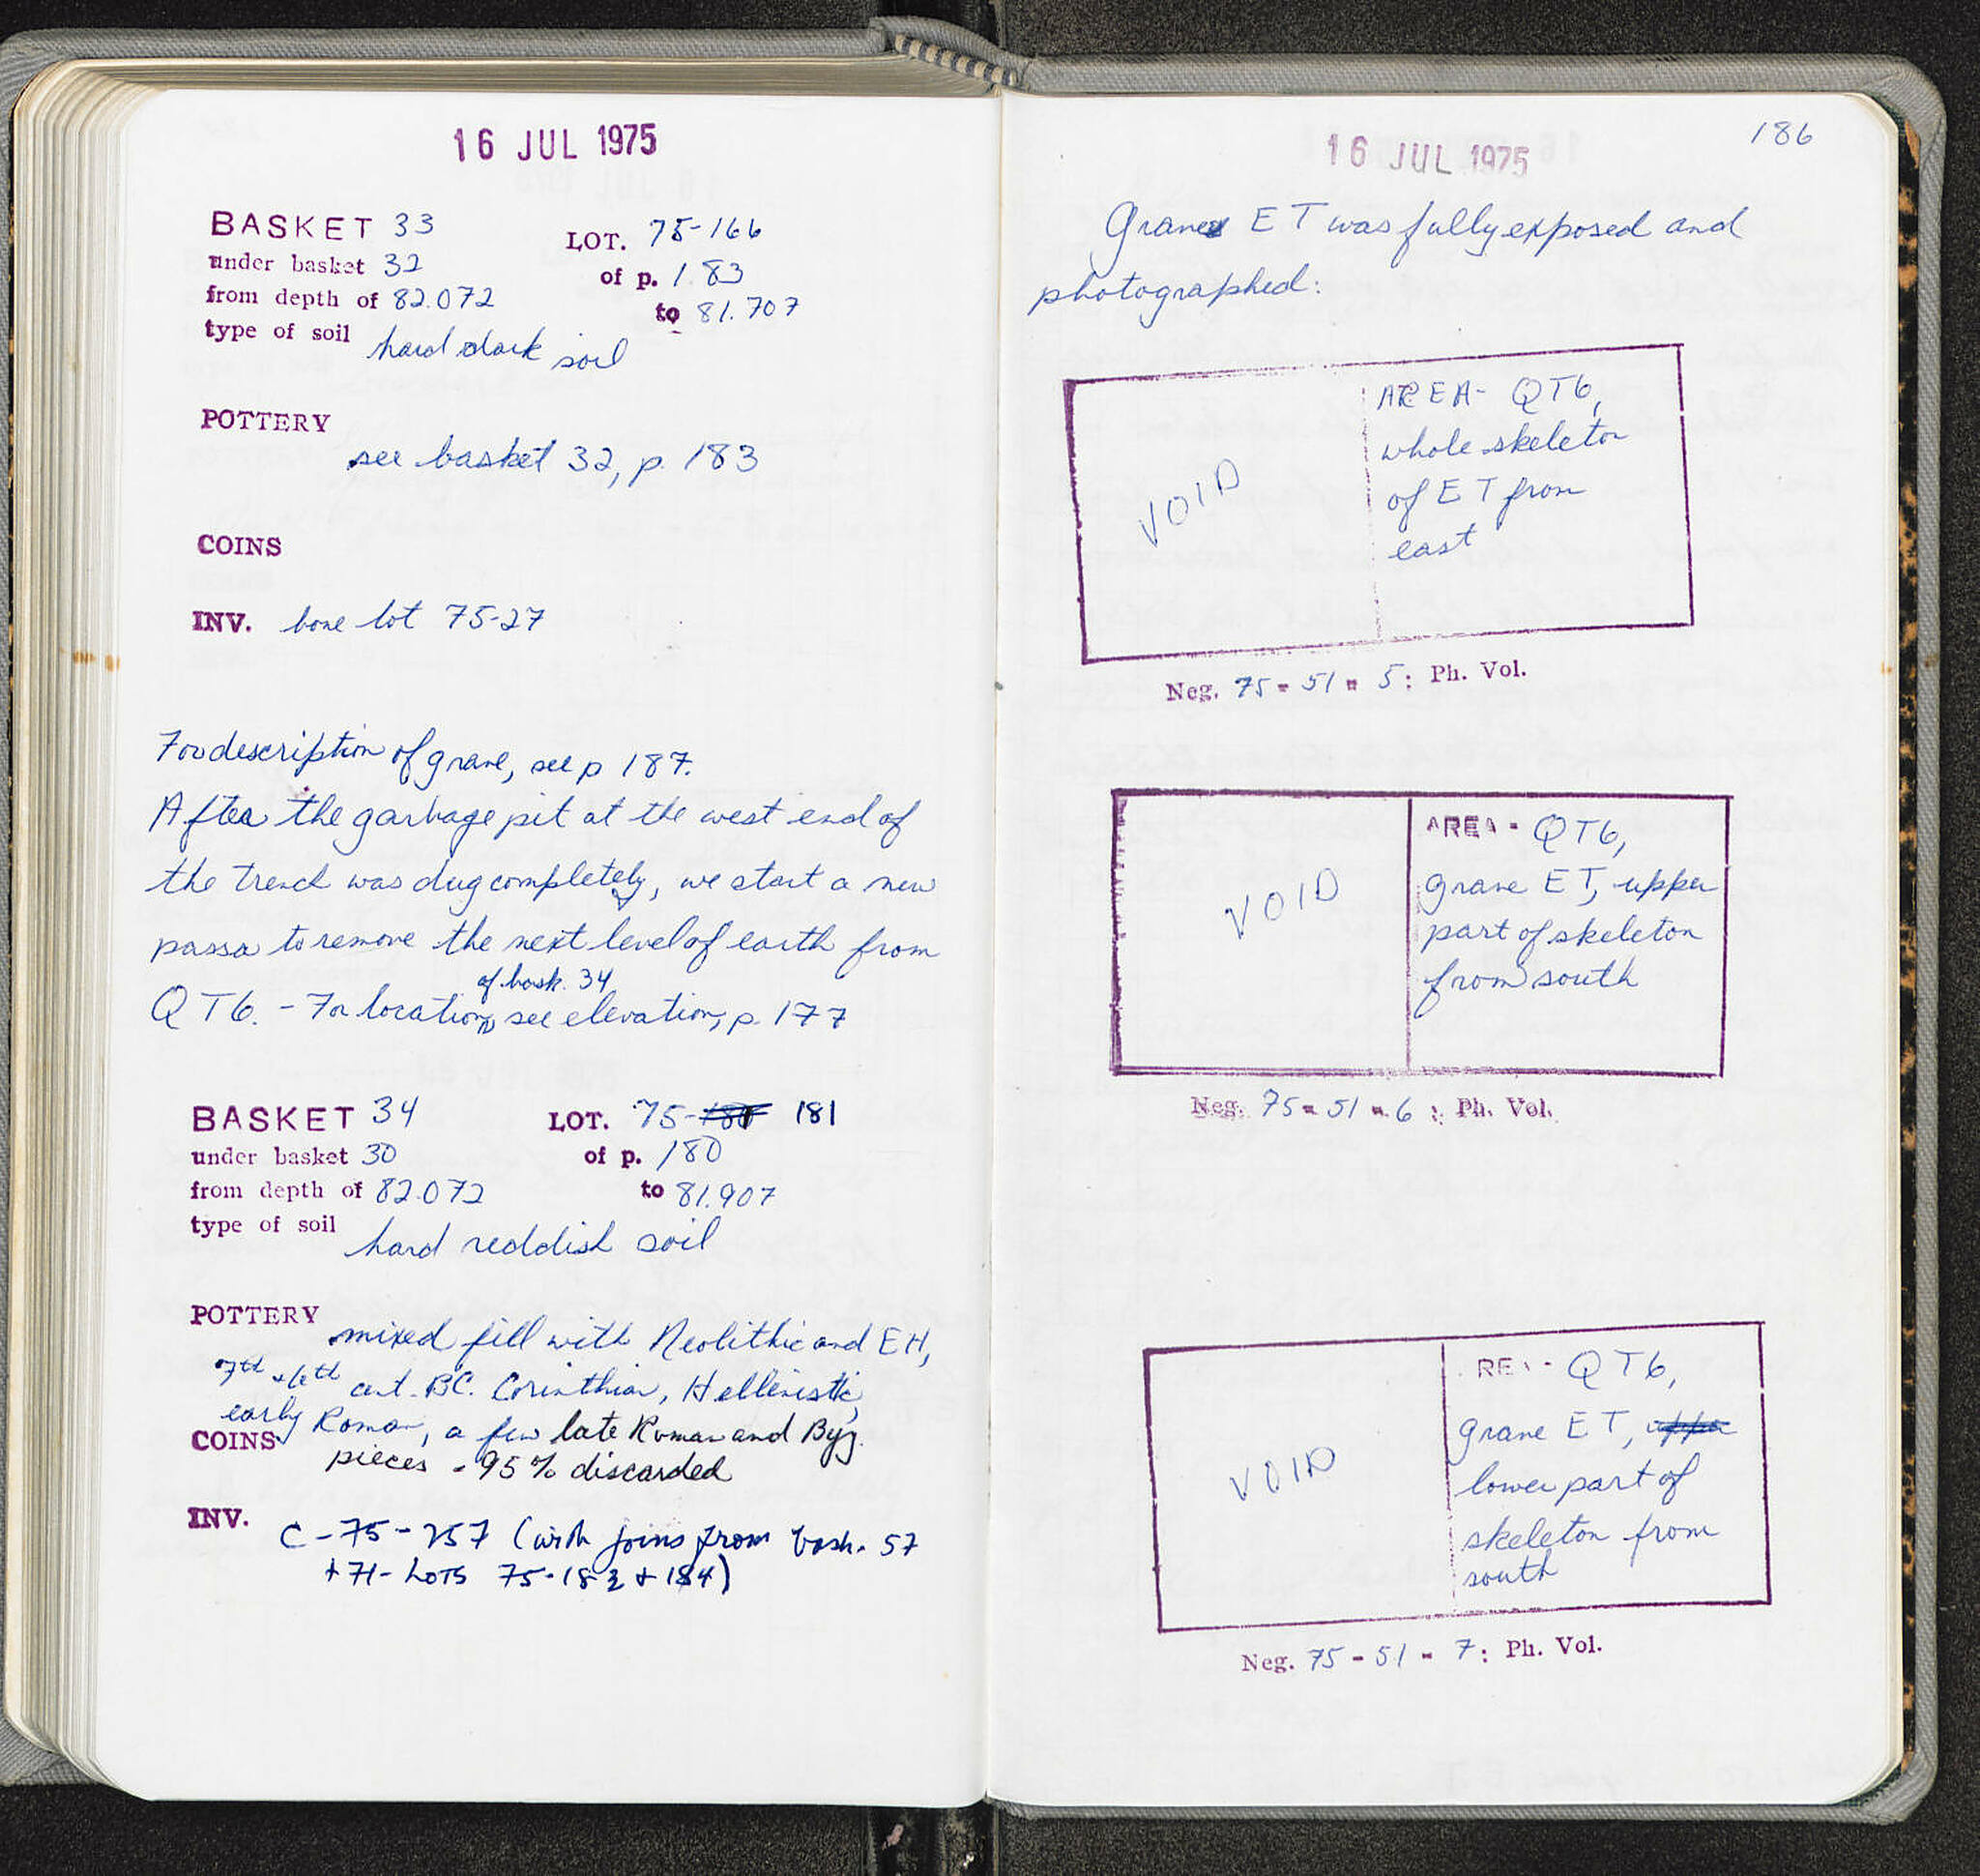 16 JUL 1975
BASKET 33 LOT. 75-166
under basket 32 of p. 183
from depth of 82.072 to 81.707
type of soil hard dark soil
POTTERY
see basket 32, p. 183
COINS
INV. bone lot 75-27
For description of grave, see p 187.
After the garbage pit at the west end of
the trench was dug completely, we start a new
passa to remove the next level of earth from
of bask. 34
QT6. - For location, see elevation, p. 177
BASKET 34 LOT. 75-180 181
under basket 30 of p. 180
from depth of 82.072 to 81.907
type of soil hard reddish soil
POTTERY
mixed fill with Neolithic and EH,
7th + 6th cent. BC. Corinthian, Hellenistic,
early Roman, a few late Roman and Byz.
COINS
pieces - 95% discarded
INV. C-75-257 (with joins from bask. 57
+ 71- LOTS 75-182 + 184)
186
16 JUL 1975
Grave ET was fully exposed and
photographed:
VOID
AREA- QT6,
whole skeleton
of ET from
east
Neg. 75-51-5: Ph. Vol.
VOID
AREA- QT6,
grave ET, upper
part of skeleton
from south
Neg. 75-51-6: Ph. Vol.
VOID
REA- QT6,
grave ET, uppe
lower part of
skeleton from
south
Neg. 75-51-7: Ph. Vol.